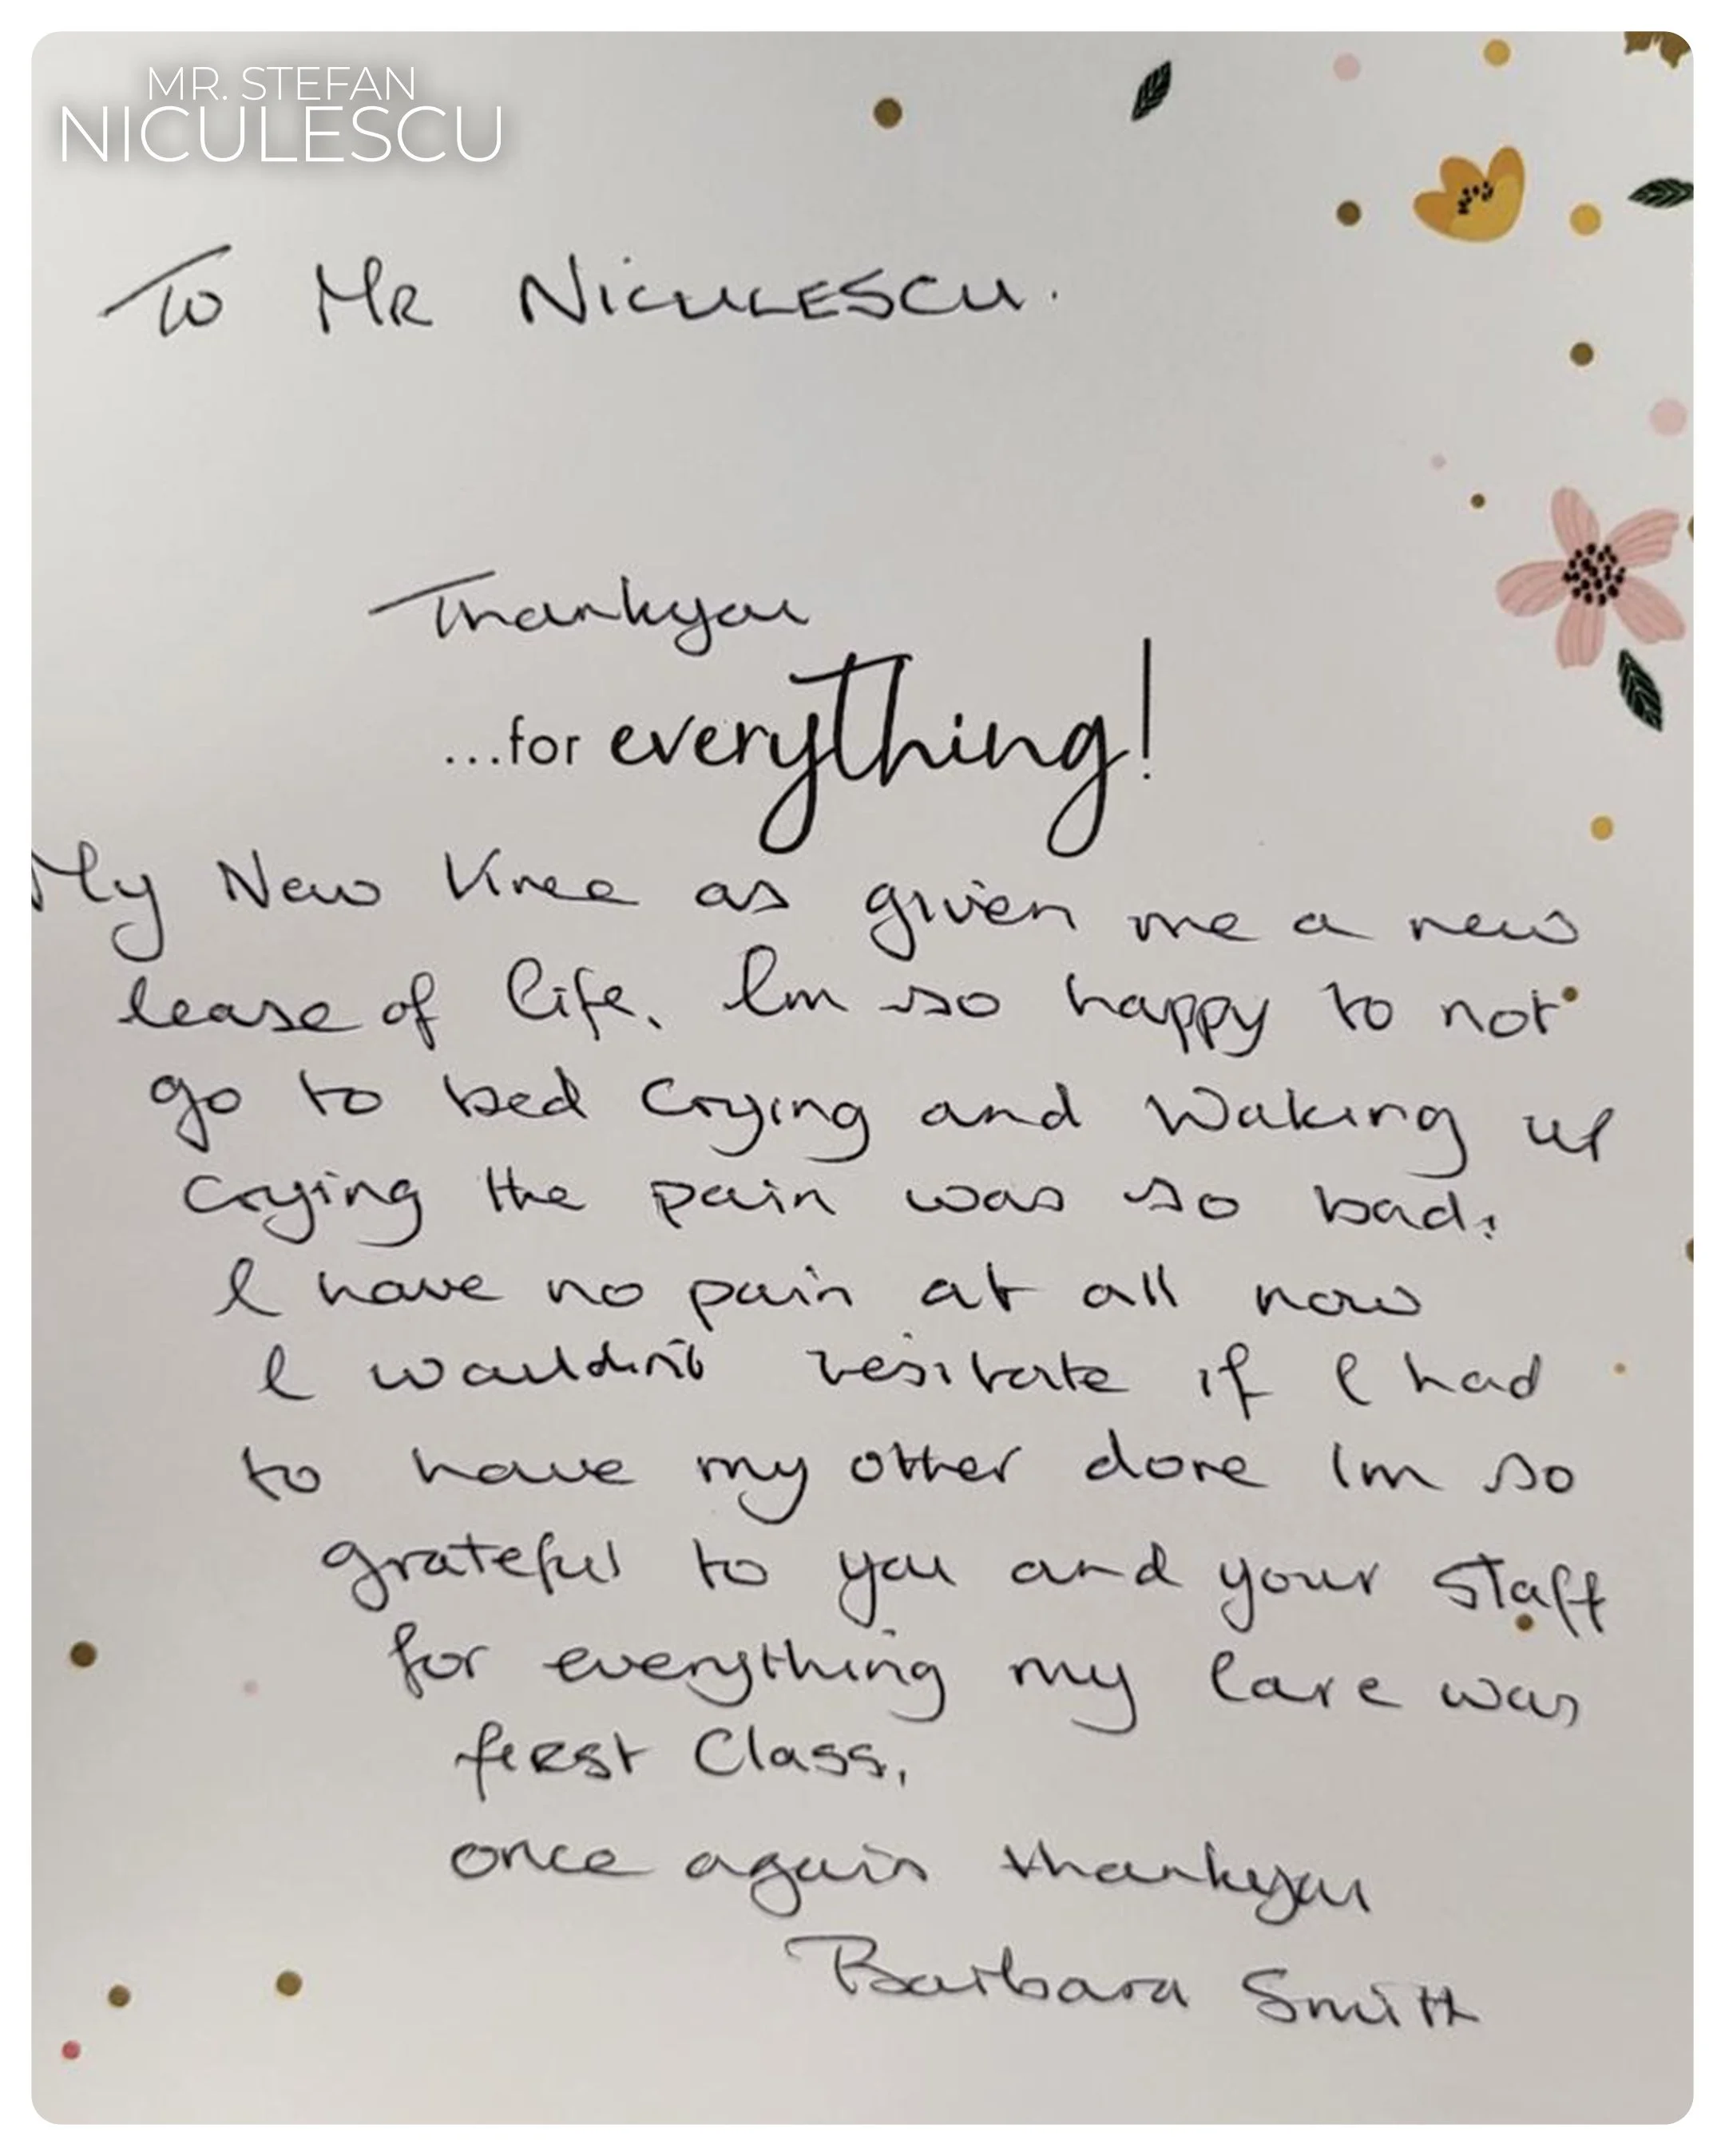 MR. STEFAN
NICULESCU
To MR NICULESCU.
Thankyou
...for everything!
My New Knee as given me a new
lease of life. Im so happy to not
go to bed crying and waking up
crying the pain was so bad.
I have no pain at all now
I wouldn't hesitate if I had
to have my other done Im so
grateful to you and your staff
for everything my care was
first Class,
once again thankyou
Barbara Smith